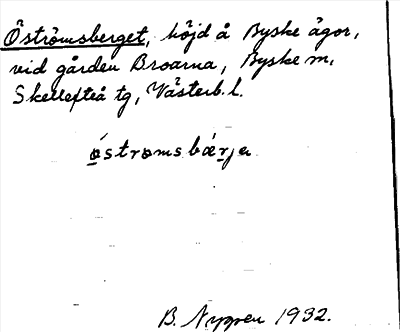 Öströmsberget, höjd å Byske ägor,
vid gården Broarna, Byske m,
Skellefteå tg, Västerb. l.
östromsbærja
B. Nygren 1932.